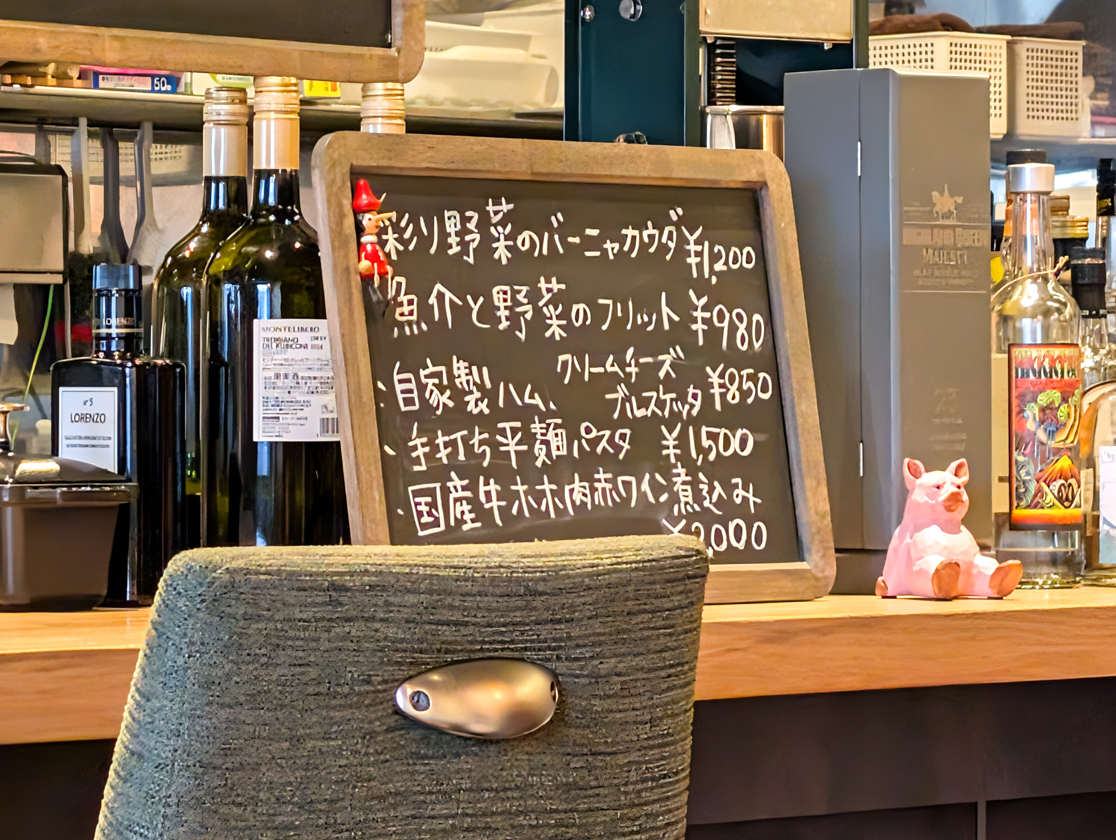 50
彩り野菜のバーニャカウダ ¥1,200
魚介と野菜のフリット ¥980
・自家製ハム、クリームチーズ
ブルスケッタ ¥850
・手打ち平麺パスタ ¥1,500
・国産牛ホホ肉赤ワイン煮込み
¥2,000
MONTELIBERO
TREBBIANO
DEL RUBICONE
LORENZO
N°5
LORENZO
MAJESTY